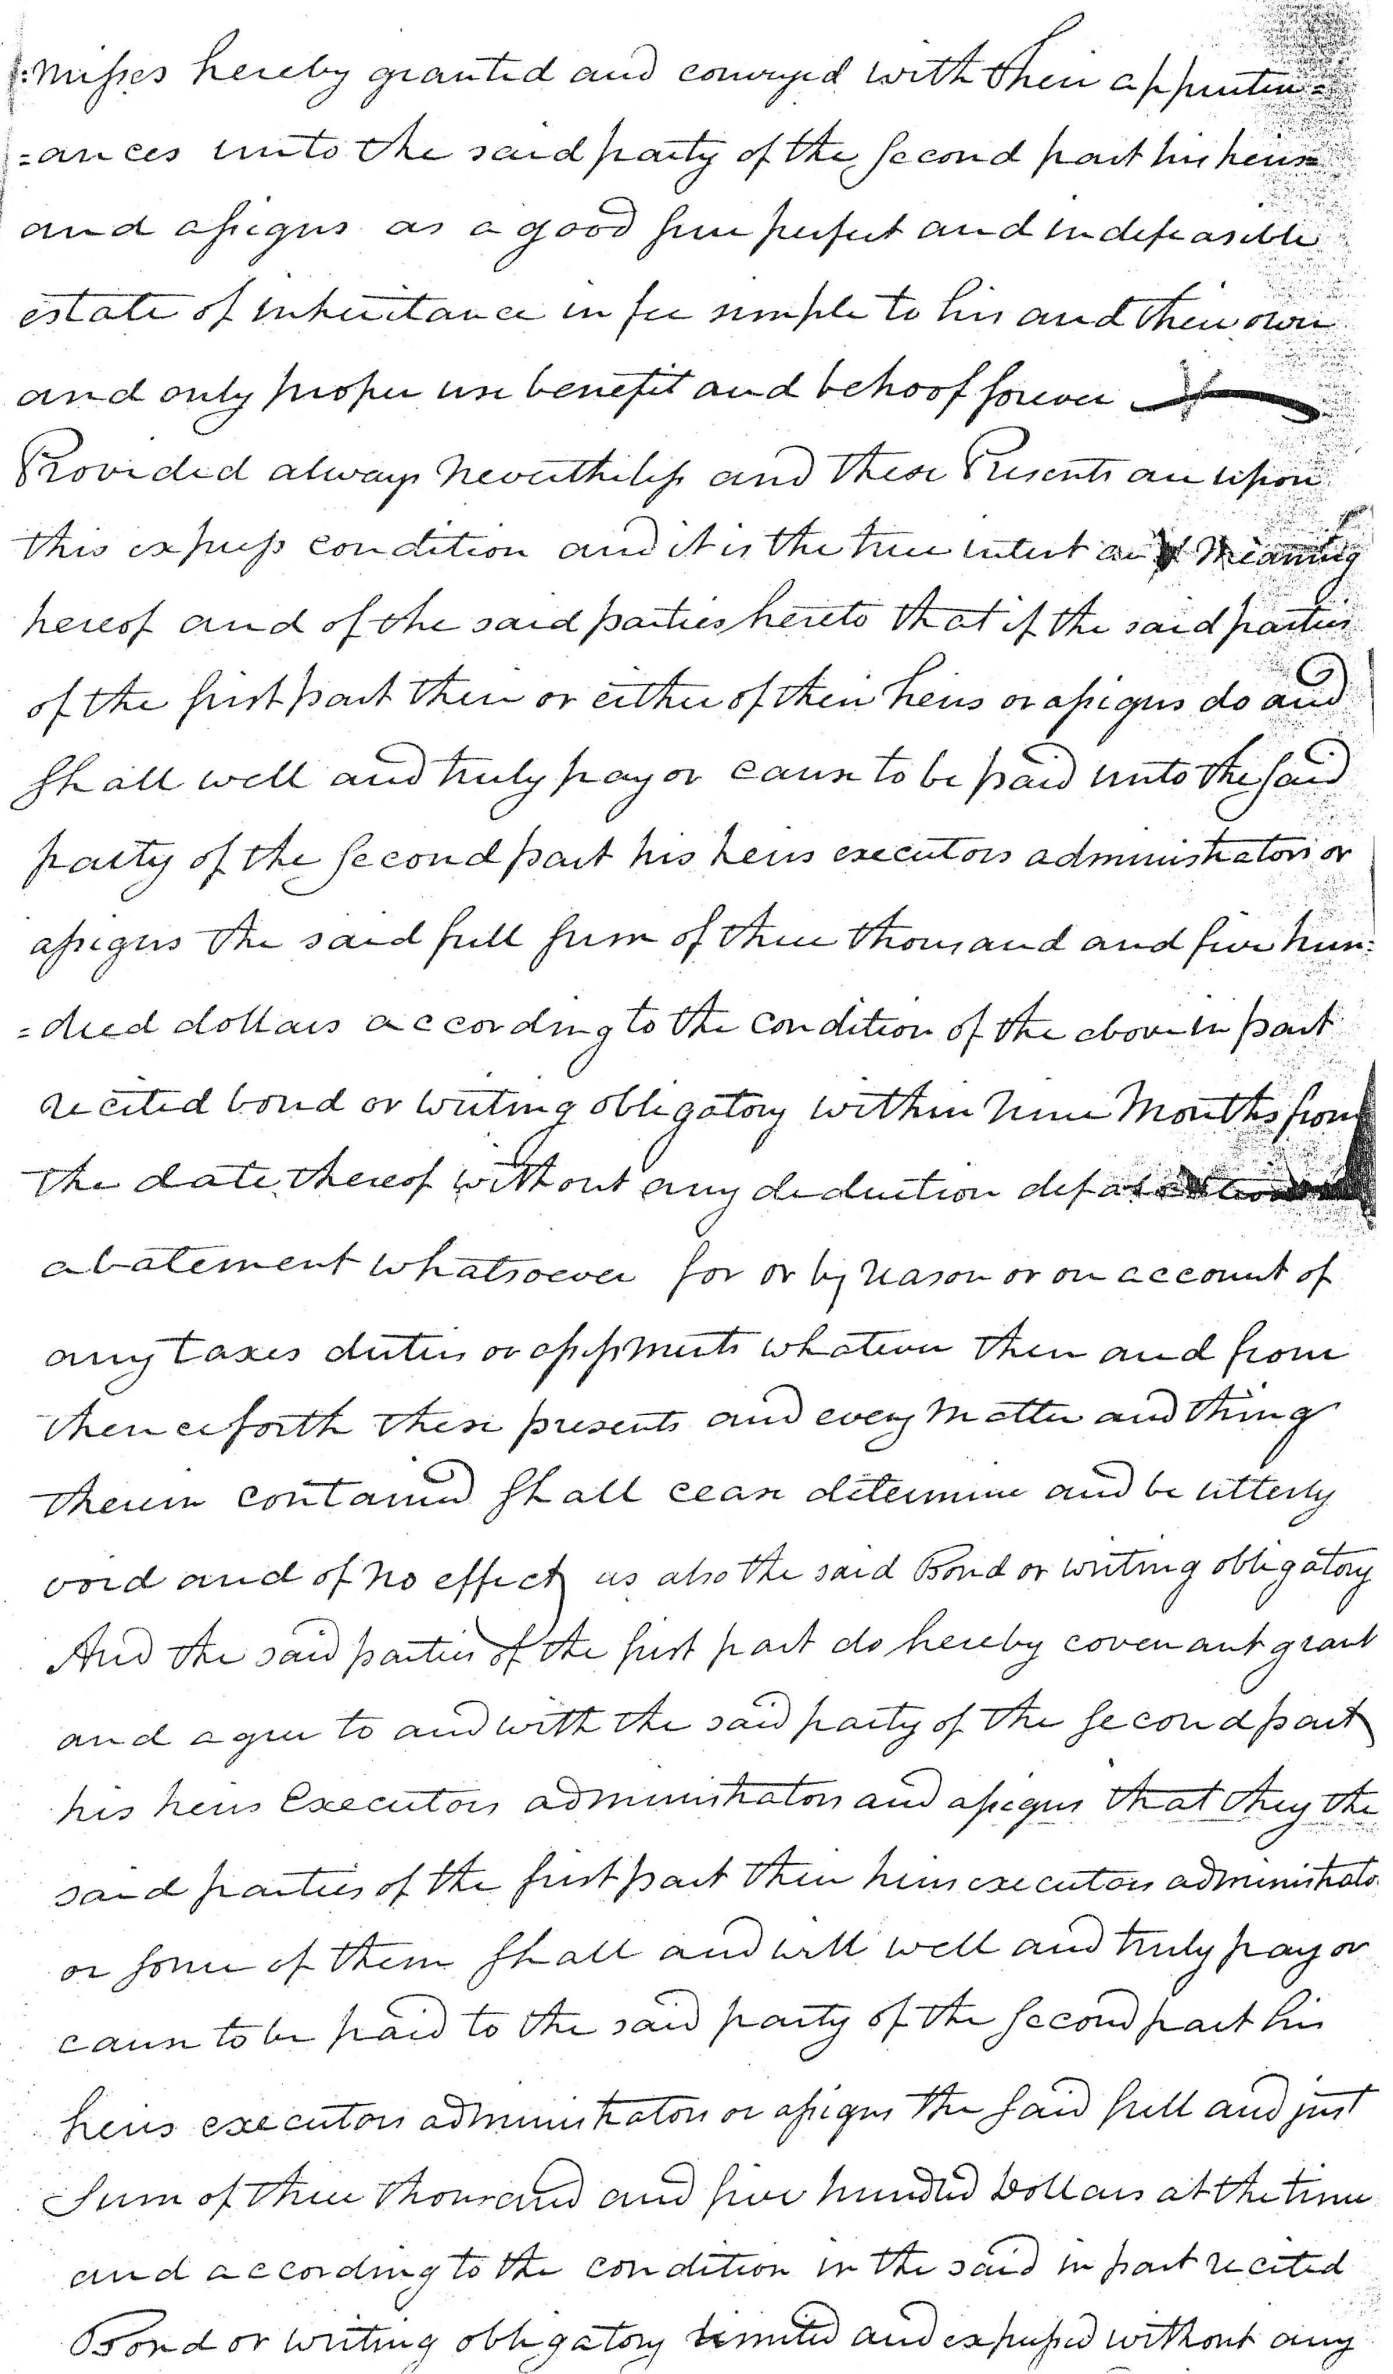 :misses hereby granted and conveyed with their appurten=
=ances unto the said party of the second part his heirs
and assigns as a good sure perfect and indefeasible
estate of inheritance in fee simple to his and their own
and only proper use benefit and behoof forever
Provided always Nevertheless and these Presents are upon
this express condition and it is the true intent and Meaning
hereof and of the said parties hereto that if the said parties
of the first part their or either of their heirs or assigns do and
Shall well and truly pay or cause to be paid unto the said
party of the second part his heirs executors administrators or
assigns the said full sum of three thousand and five hun:
=dred dollars according to the condition of the above in part
recited bond or writing obligatory within nine Months from
the date thereof without any deduction defalcation
abatement whatsoever for or by reason or on account of
any taxes duties or assessments whatever then and from
thenceforth these presents and every Matter and thing
therein contained Shall cease determine and be utterly
void and of no effect as also the said Bond or writing obligatory
And the said parties of the first part do hereby covenant grant
and agree to and with the said party of the second part
his heirs Executors administrators and assigns that they the
said parties of the first part their heirs executors administrato
or some of them Shall and will well and truly pay or
cause to be paid to the said party of the second part his
heirs executors administrators or assigns the said full and just
Sum of three thousand and five hundred Dollars at the time
and according to the condition in the said in part recited
Bond or writing obligatory limited and expressed without any